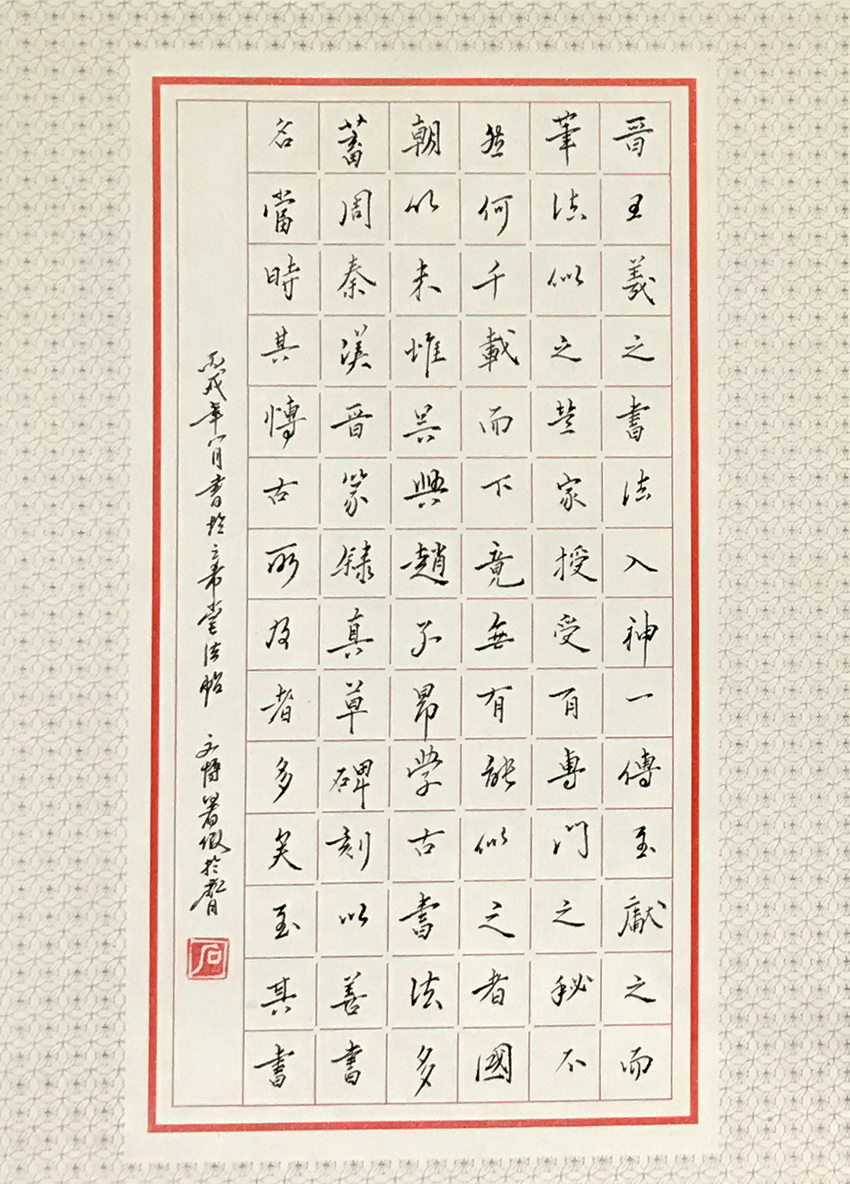 晋王羲之書法入神一傳至獻之而
筆法似之盖家授受有專門之秘不
然何千載而下竟無有能似之者國
朝以来惟吴興趙子昂学古書法多
蓄周秦漢晋篆隸真草碑刻以善書
名當時其博古所及者多矣至其書
丙戌年八月書於三希堂法帖